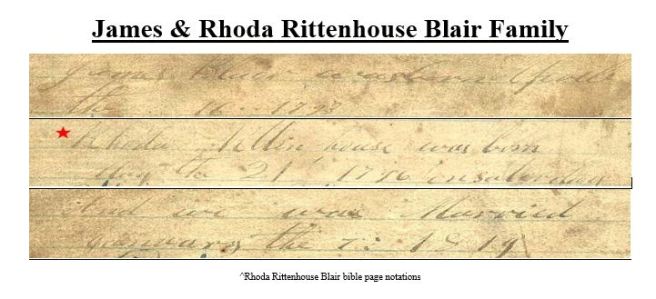 James & Rhoda Rittenhouse Blair Family
James Blair was born Aprille
the 16 1797
Rhoda Rittinhouse was born
the 21 1796 on saterday
And we was Married
January the 7: 1819
^Rhoda Rittenhouse Blair bible page notations